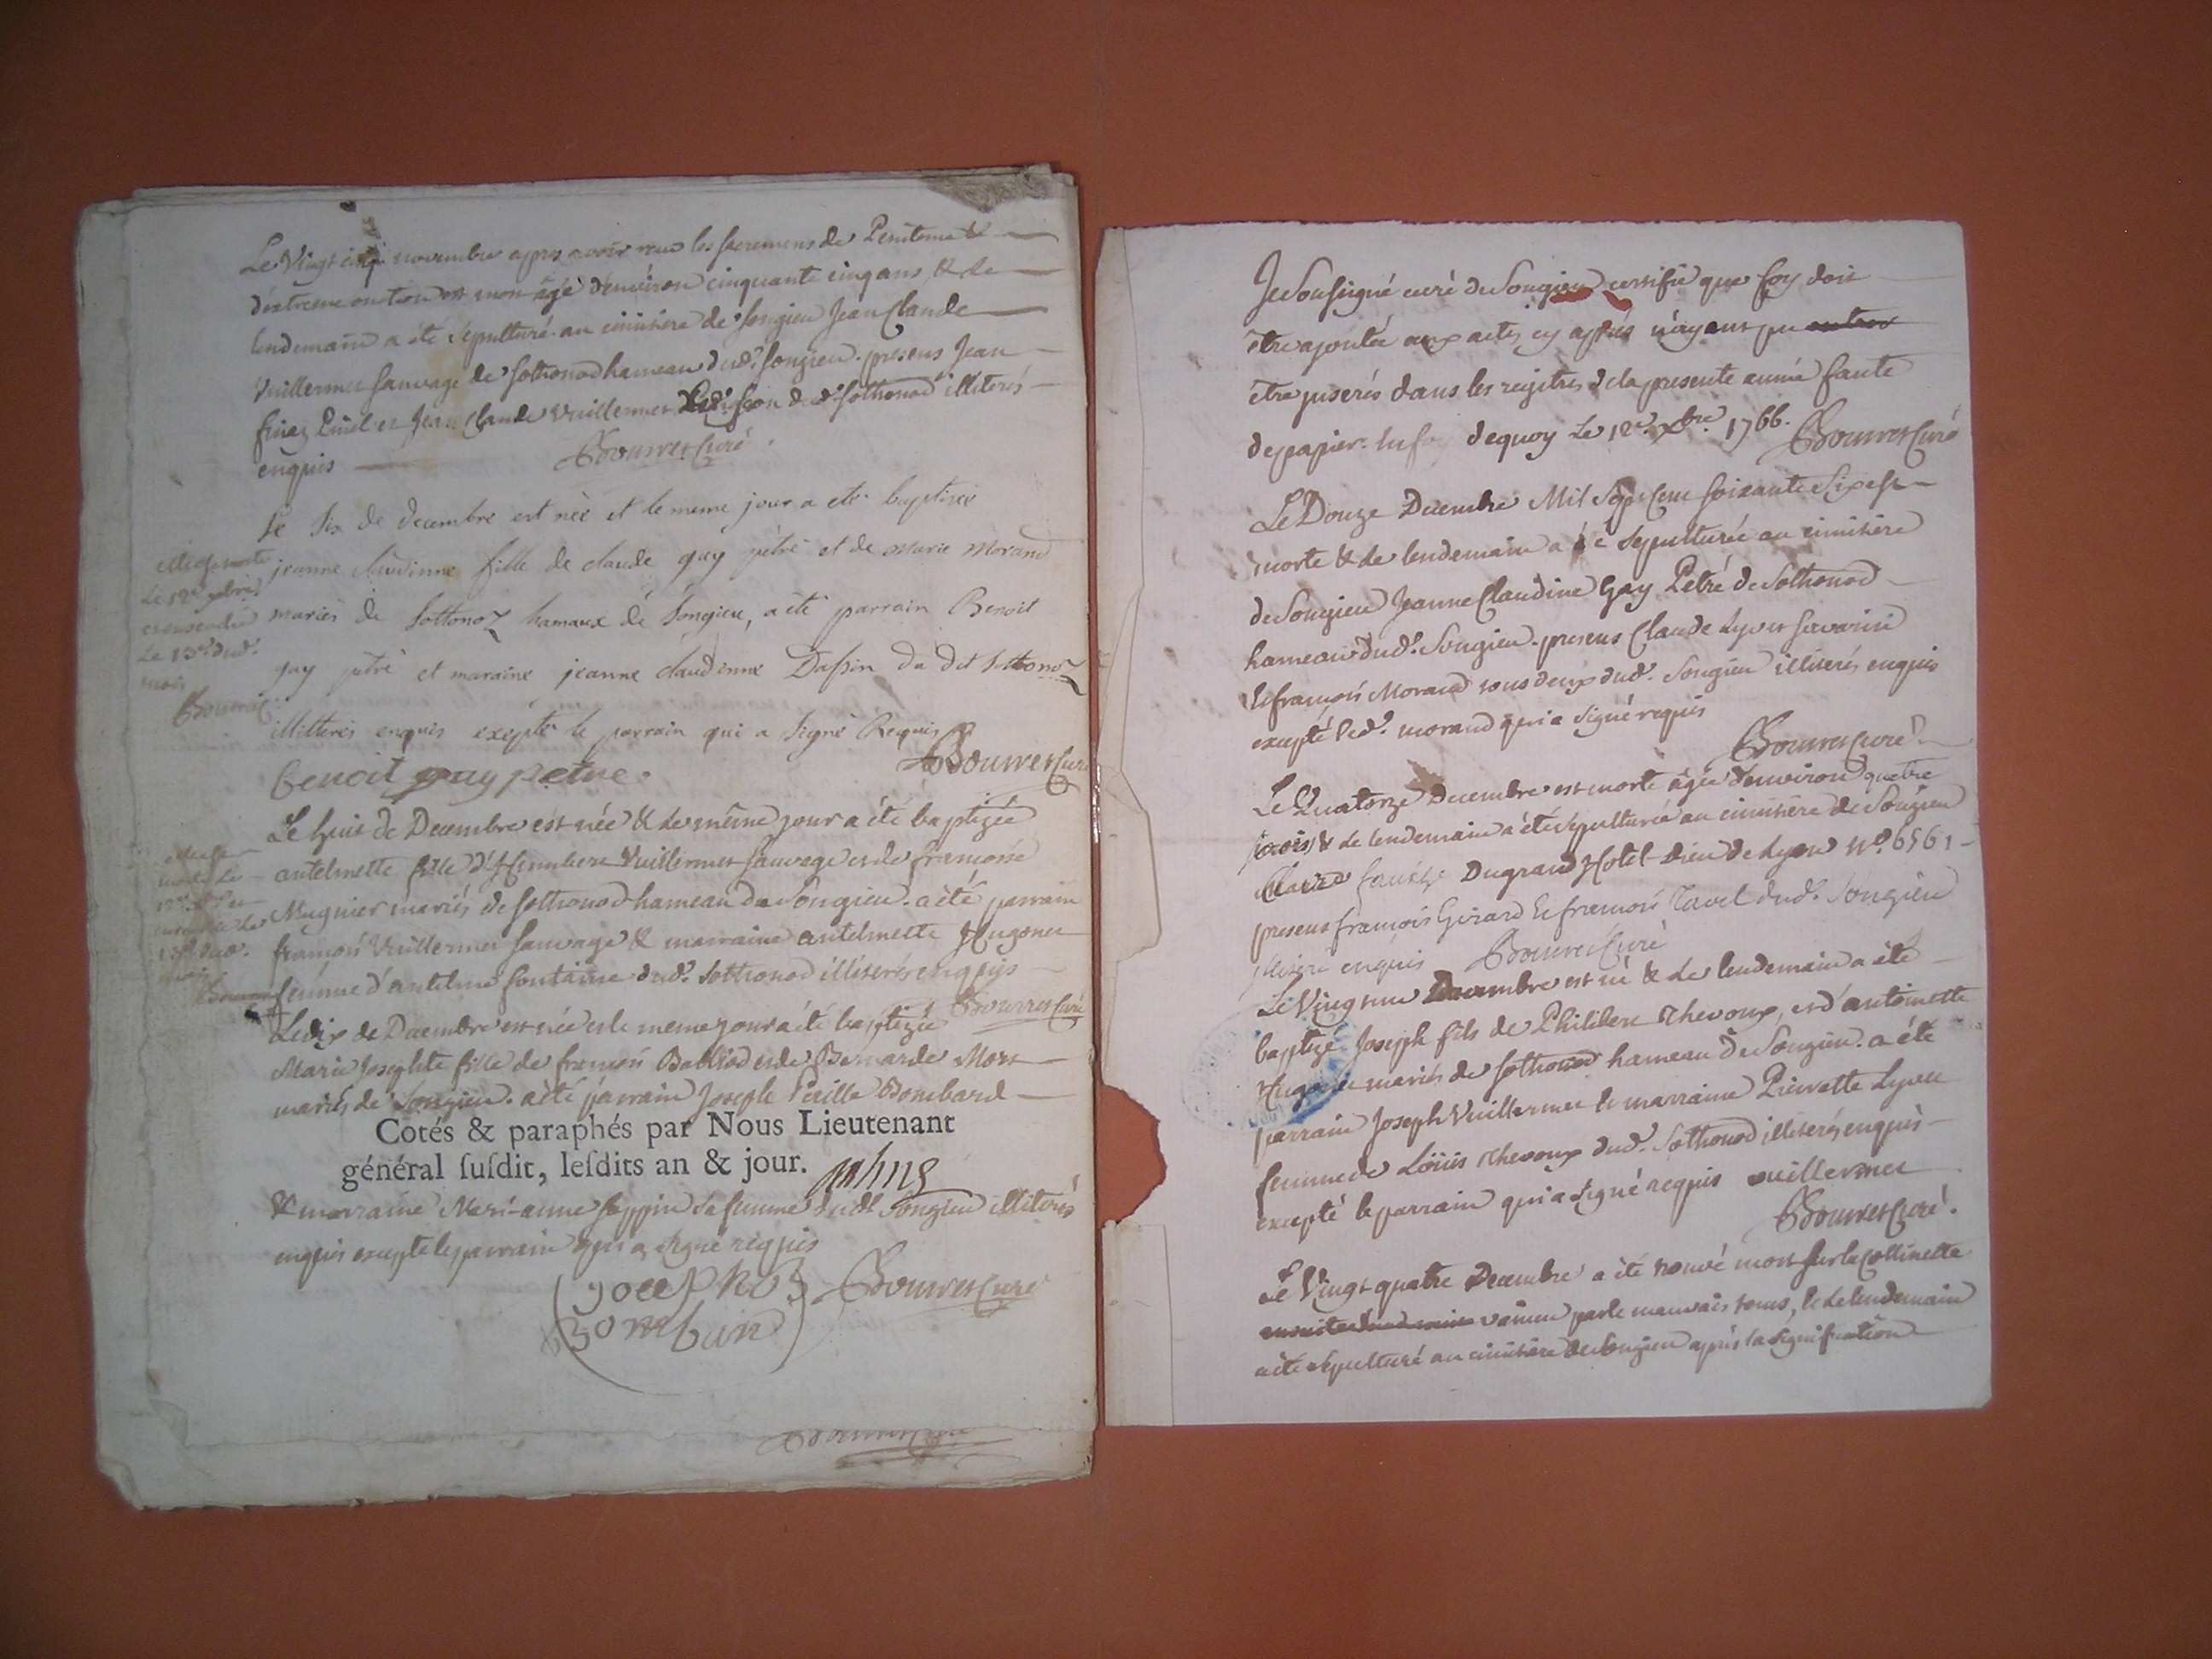 Le Vingt cinq novembre apres avoir reçu les sacremens de Penitence &
d'extreme onction est mort âgé d'environ cinquante cinq ans, & le
lendemain a été sepulturé au cimitiere de Songieu Jean Claude
Vuillermet Sauvage de Sothonod hameau dud.t Songieu. presens Jean
et Jean Claude Vuillermet dud.t Sothonod illiterés
enquis Bouvret Curé.
Le six de decembre est née et le meme jour a eté baptisée
jeanne claudinne fille de claude gay pétre et de marie Morand
mariés de Sottonoz hamaux de Songieu, a été parrain Benoit
gay pétre et maraine jeanne claudinne Dassin du dit Sottonoz
illitterés enquis excepté le parrain qui a signé Requis
Benoit gay petre. Bouvret Curé
elle est morte
Le 12.e
Le 13.e dud.t
mois
Bouvret
Le huit de Decembre est née & le même jour a été baptizée
antelmette fille d'Humbert Vuillermet Sauvage et de francoise
Mugnier mariés de Sothonod hameau de Songieu. a été parrain
francois Vuillermet Sauvage & marraine antelmette Hugonet
femme d'antelme fontaine dud.t Sothonod illiterés enquis
Bouvret Curé
elle est
morte Le
12.e
13.e dud.t
mois
Bouvret
Le dix de Decembre est née et le meme jour a été baptizée
Marie Josephte fille de francois Balliod et de Bernarde Mort
mariés de Songieu. a été parrain Joseph Bombard
Cotés & paraphés par Nous Lieutenant
général susdit, lesdits an & jour.
& marraine Marianne sa femme dud.t Songieu illiterés
enquis excepté le parrain qui a signé requis
Bouvret Curé
Bouvret Curé
Je soussigné curé de Songieu certifie que foy doit
être ajoutée aux actes cy après n'ayant pu entrer
être inserés dans les regitres de la presente année faute
de papier. En foy dequoy Le 12.e Xbre 1766. Bouvret Curé
Le Douze Decembre Mil Sept Cent soixante Six est
morte & le lendemain a été sepulturée au cimitiere
de Songieu Jeanne Claudine Gay Petré de Sothonod
hameau dud.t Songieu. presens Claude Lyvet Savarin
& francois Morand tous deux dud.t Songieu illiterés enquis
excepté led.t morand qui a signé requis
Bouvret Curé
Le Quatorze Decembre est morte âgée d'environ quatre
mois & le lendemain a été sepulturée au cimitiere de Songieu
Du grand Hotel-Dieu de Lyon N.o 6561
presens francois Girard & francois Tavel dud.t Songieu
illiterés enquis Bouvret Curé
Le Vingt un Decembre est né & le lendemain a été
baptizé Joseph fils de Philibert Thevoux, et d'antoinette
Hugonet mariés de Sothonod hameau de Songieu. a été
parrain Joseph Vuillermet & marraine Pierrette Lyvet
femme de Loüis Thevoux dud.t Sothonod illiterés enquis
excepté le parrain qui a signé requis vuillermet
Bouvret Curé.
Le Vingt quatre Decembre a été trouvé mort sur la Collinette
vaincu par le mauvais tems, & le lendemain
a été sepulturé au cimitiere de Songieu après la signification